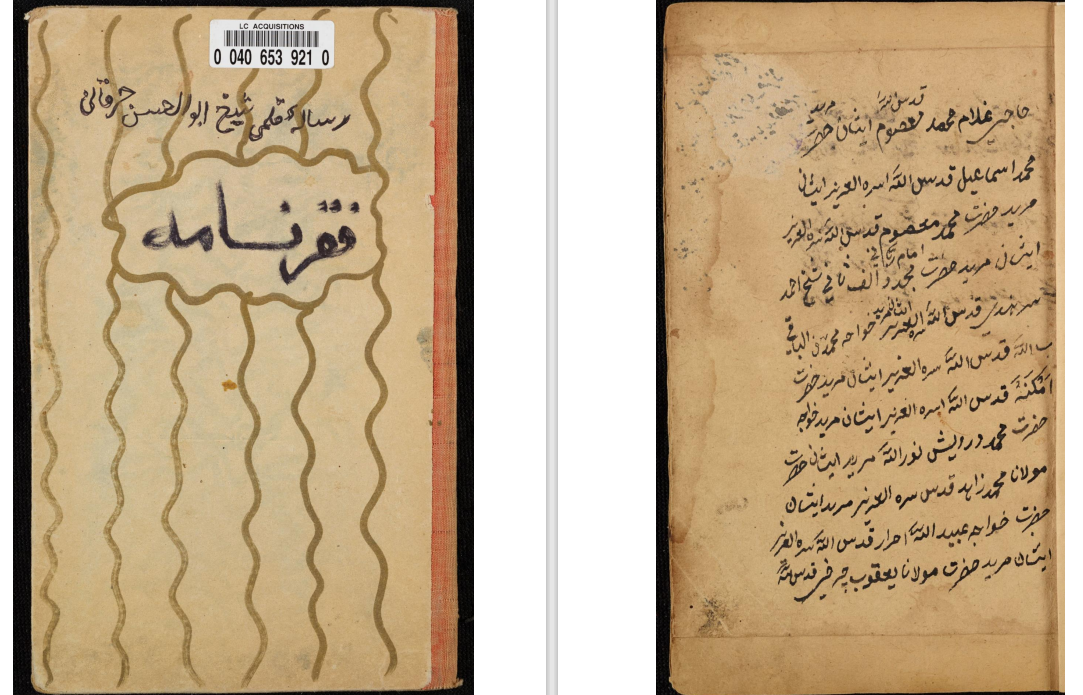 LC ACQUISITIONS
0 040 653 921 0
رسالهٔ قلمی شیخ ابوالحسن خرقانی
فقرنامه
قدس الله
حاجی غلام محمد معصوم ایشان مرید حضرت
محمد اسماعیل قدس الله اسره العزیز ایشان
مرید حضرت محمد معصوم قدس الله سره العزیز
ایشان مرید حضرت امام ربانی مجدد الف ثانی شیخ احمد
سرهندی قدس الله سره العزیز ایشان مرید خواجه محمد الباقی
بالله قدس الله سره العزیز ایشان مرید حضرت
امکنهٔ قدس الله اسره العزیز ایشان مرید خواجه
حضرت محمد درویش نورالله مرید ایشان حضرت
مولانا محمد زاهد قدس سره العزیز مرید ایشان
حضرت خواجه عبید الله احرار قدس الله سره العزیز
ایشان مرید حضرت مولانا یعقوب چرخی قدس الله